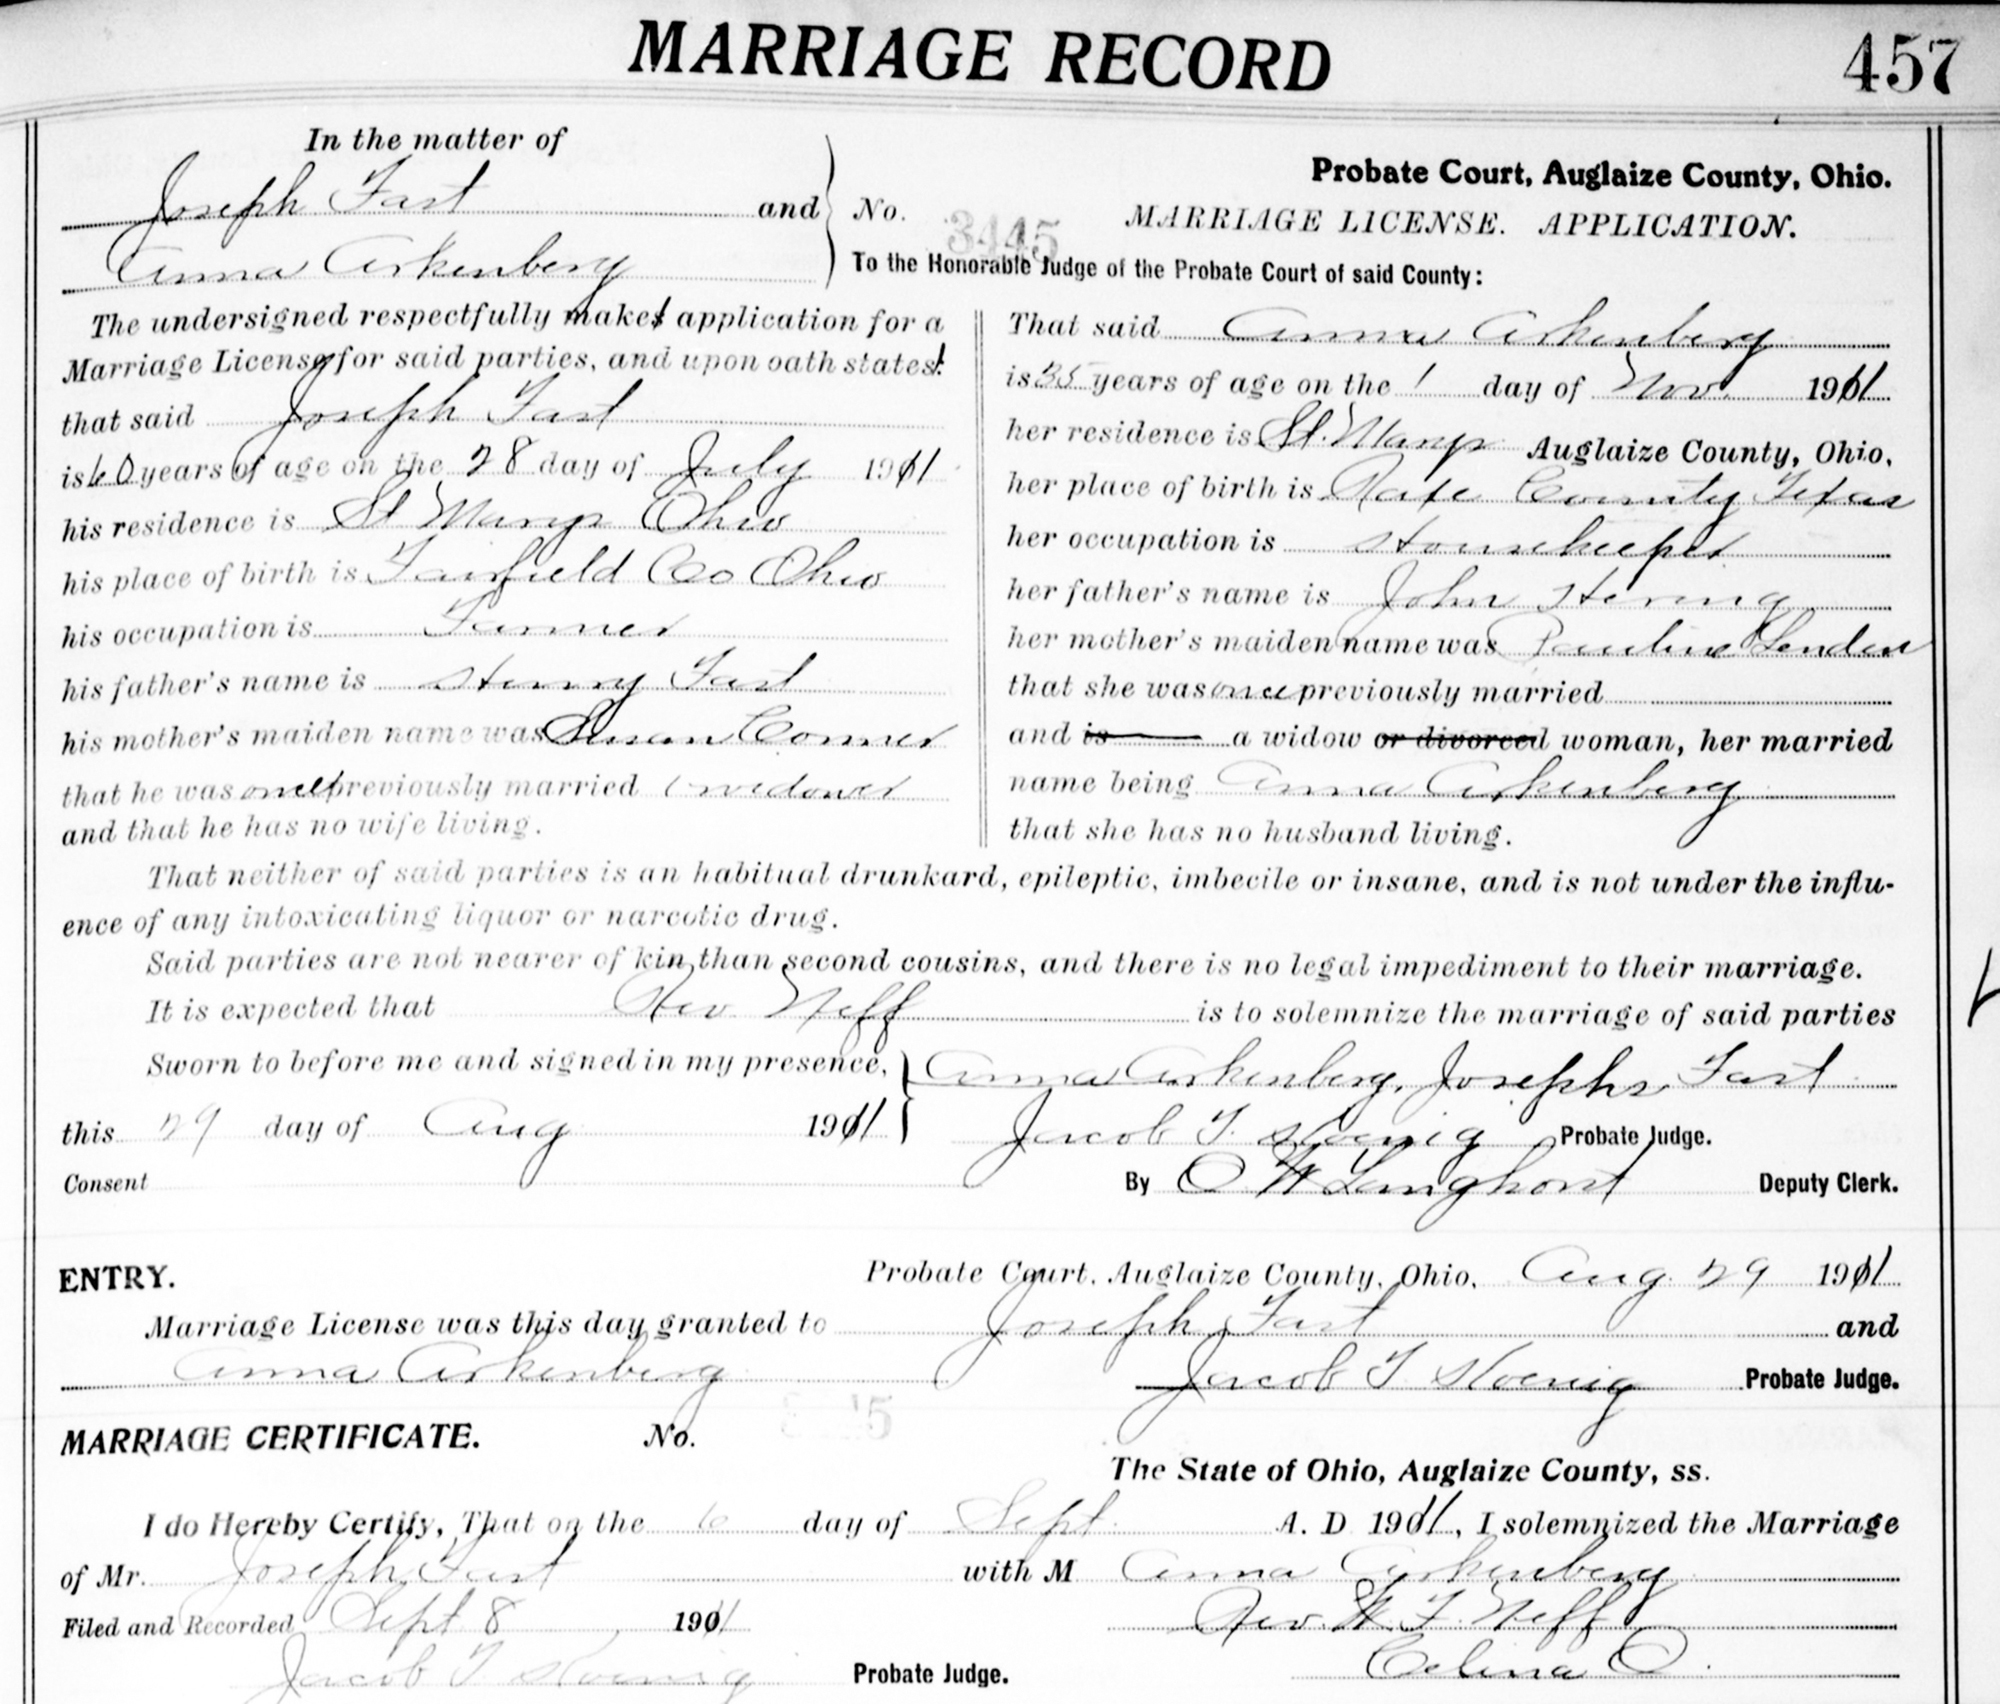 MARRIAGE RECORD 457
In the matter of
Joseph Fast and
Anna Arkenberg
No. 3445
Probate Court, Auglaize County, Ohio.
MARRIAGE LICENSE. APPLICATION.
To the Honorable Judge of the Probate Court of said County:
The undersigned respectfully makes application for a
Marriage License for said parties, and upon oath states:
that said Joseph Fast
is 60 years of age on the 28 day of July 1911
his residence is St Marys Ohio
his place of birth is Fairfield Co Ohio
his occupation is Farmer
his father's name is Henry Fast
his mother's maiden name was Susan Conner
that he was once previously married widower
and that he has no wife living.
That said Anna Arkenberg
is 35 years of age on the 1 day of Nov. 1911
her residence is St. Marys Auglaize County, Ohio,
her place of birth is County Texas
her occupation is Housekeeper
her father's name is John Hering
her mother's maiden name was Pauline
that she was once previously married
and is a widow or divorced woman, her married
name being Anna Arkenberg
that she has no husband living.
That neither of said parties is an habitual drunkard, epileptic, imbecile or insane, and is not under the influ-
ence of any intoxicating liquor or narcotic drug.
Said parties are not nearer of kin than second cousins, and there is no legal impediment to their marriage.
It is expected that Rev Neff is to solemnize the marriage of said parties
Sworn to before me and signed in my presence, Anna Arkenberg, Joseph Fast
this 29 day of Aug 1911 Jacob F. Koenig Probate Judge.
Consent By O W Langhorst Deputy Clerk.
ENTRY. Probate Court, Auglaize County, Ohio, Aug 29 1911
Marriage License was this day granted to Joseph Fast and
Anna Arkenberg Jacob F Koenig Probate Judge.
MARRIAGE CERTIFICATE. No.
The State of Ohio, Auglaize County, ss.
I do Hereby Certify, That on the 6 day of Sept. A. D 1911, I solemnized the Marriage
of Mr. Joseph Fast with M Anna Arkenberg
Filed and Recorded Sept 8 1911 Rev. W. F. Neff
Jacob F Koenig Probate Judge. Celina O.